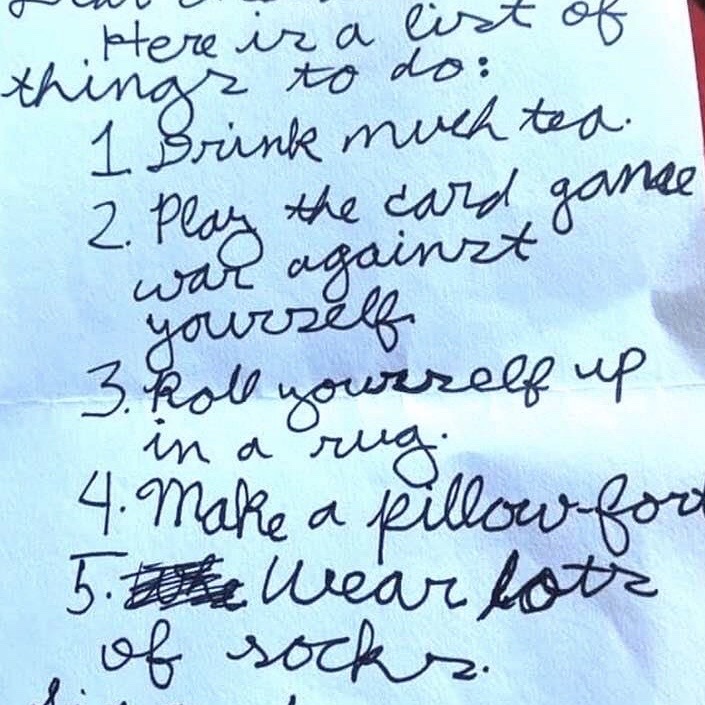 Here is a list of
things to do:
1 Drink much tea.
2. Play the card game
war against
yourself.
3. Roll yourself up
in a rug.
4. Make a pillow-fort
5. Wear lots
of socks.